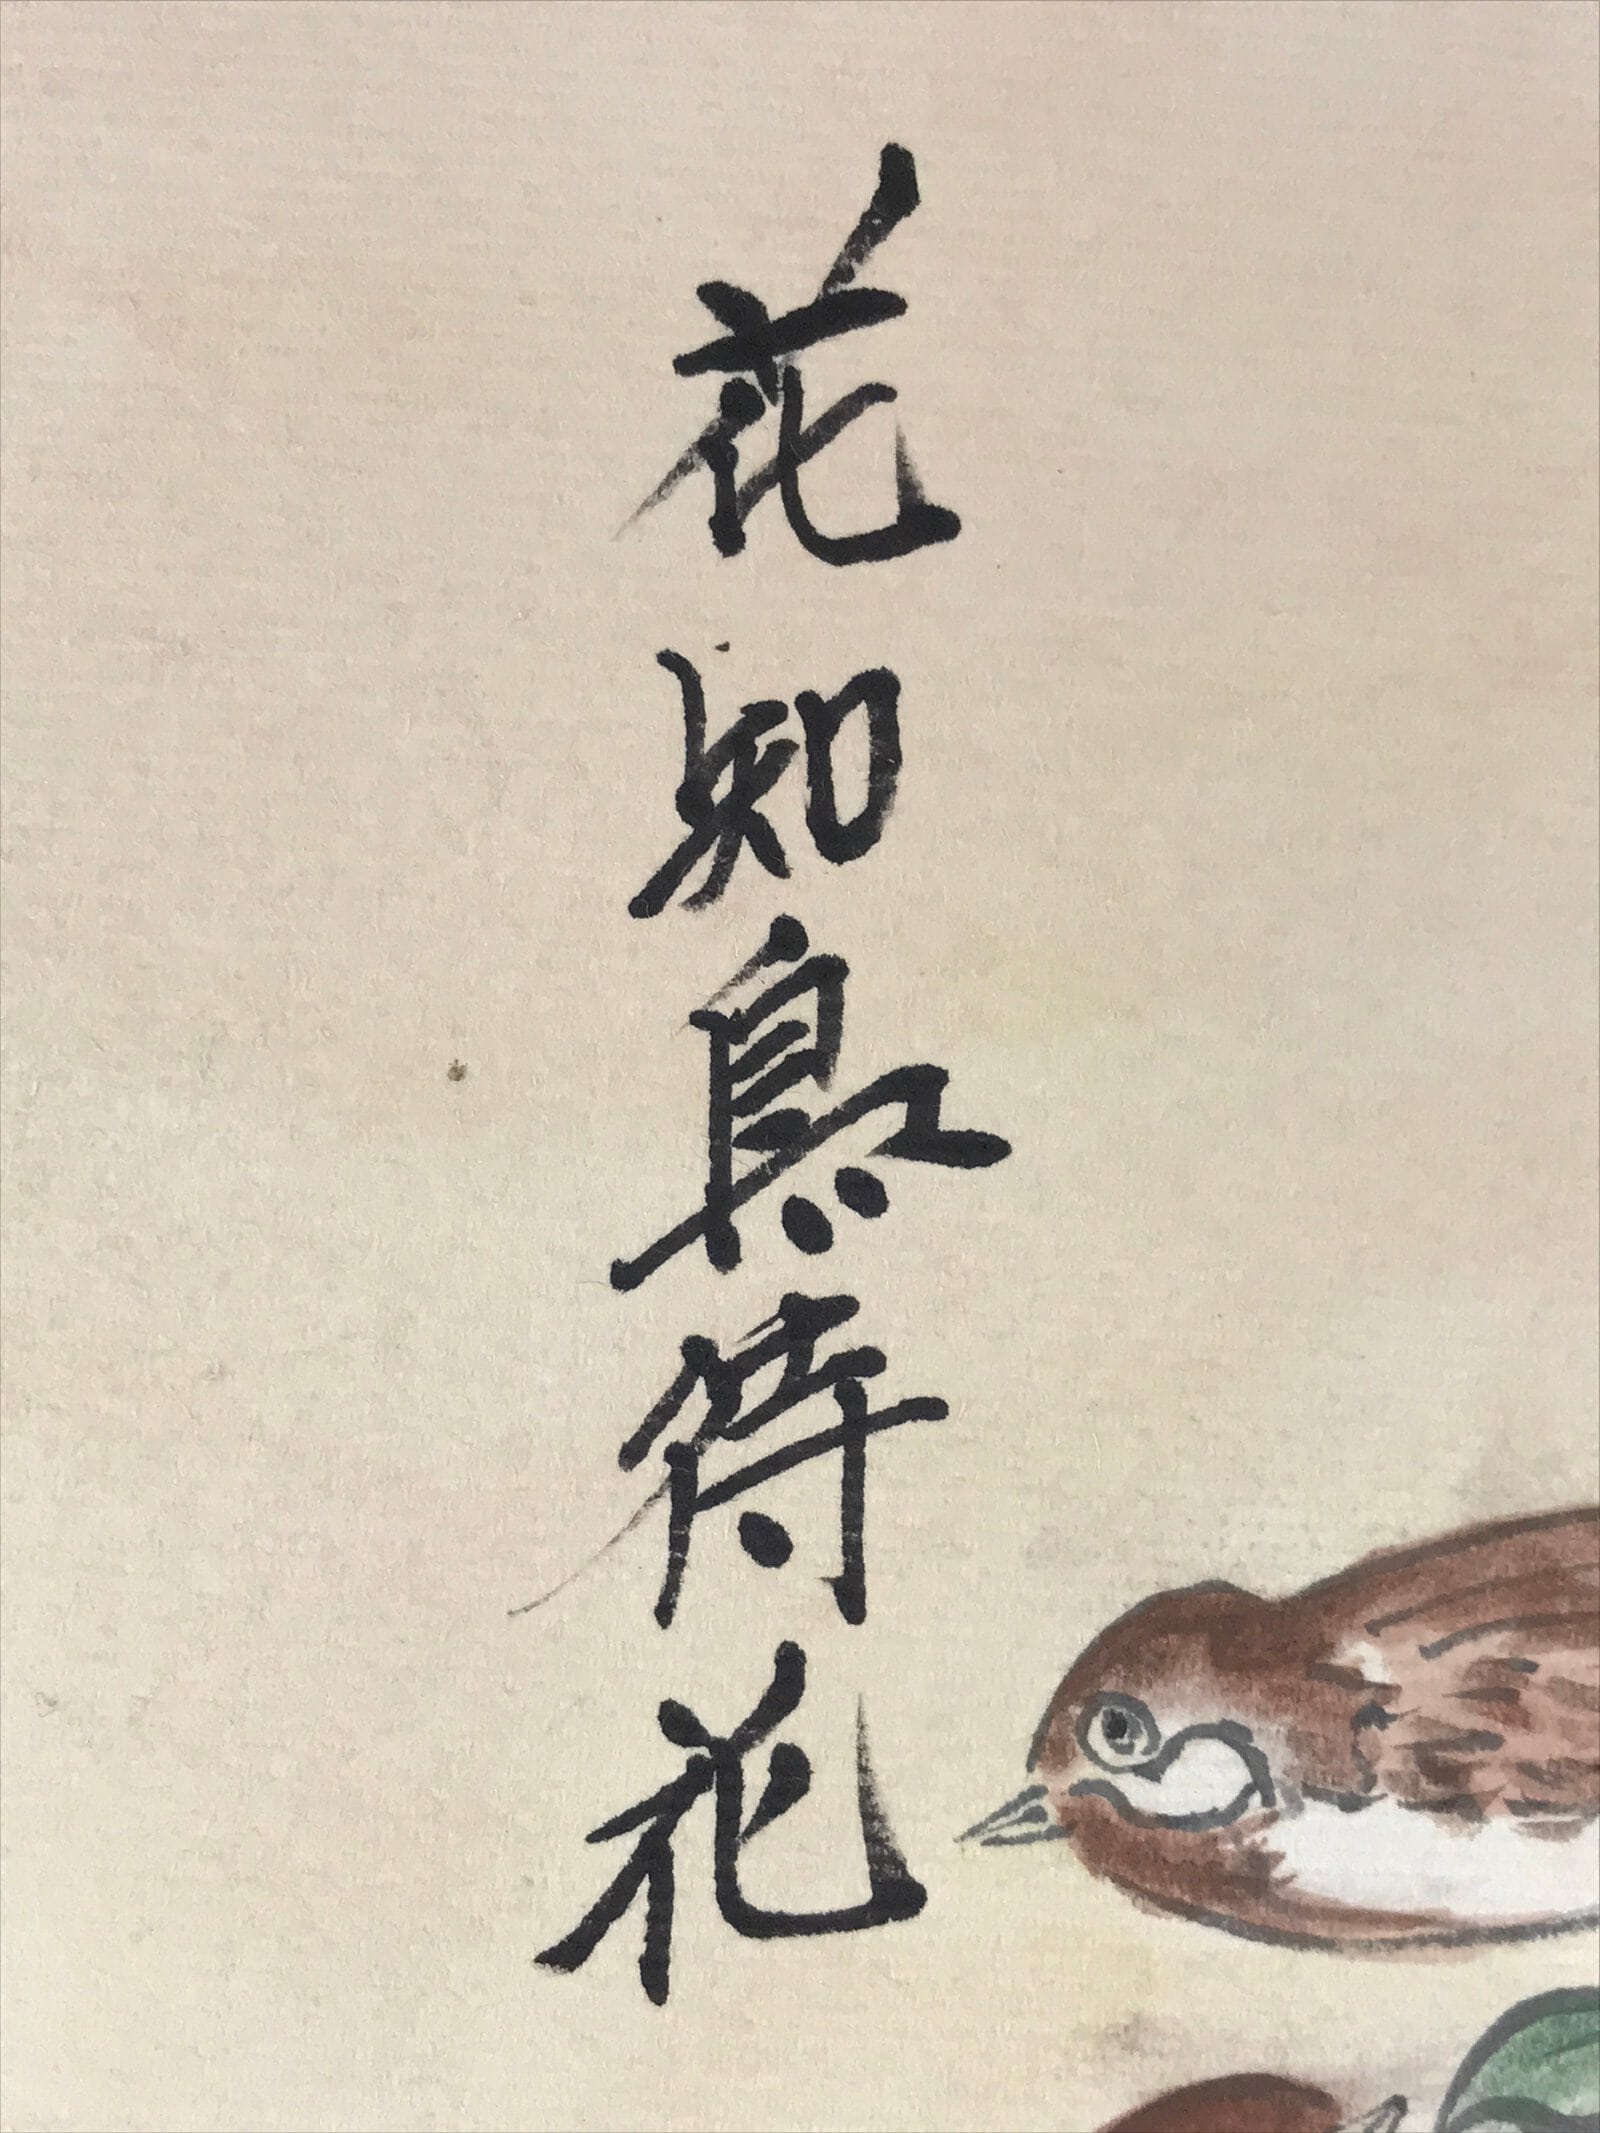 花知鳥待花